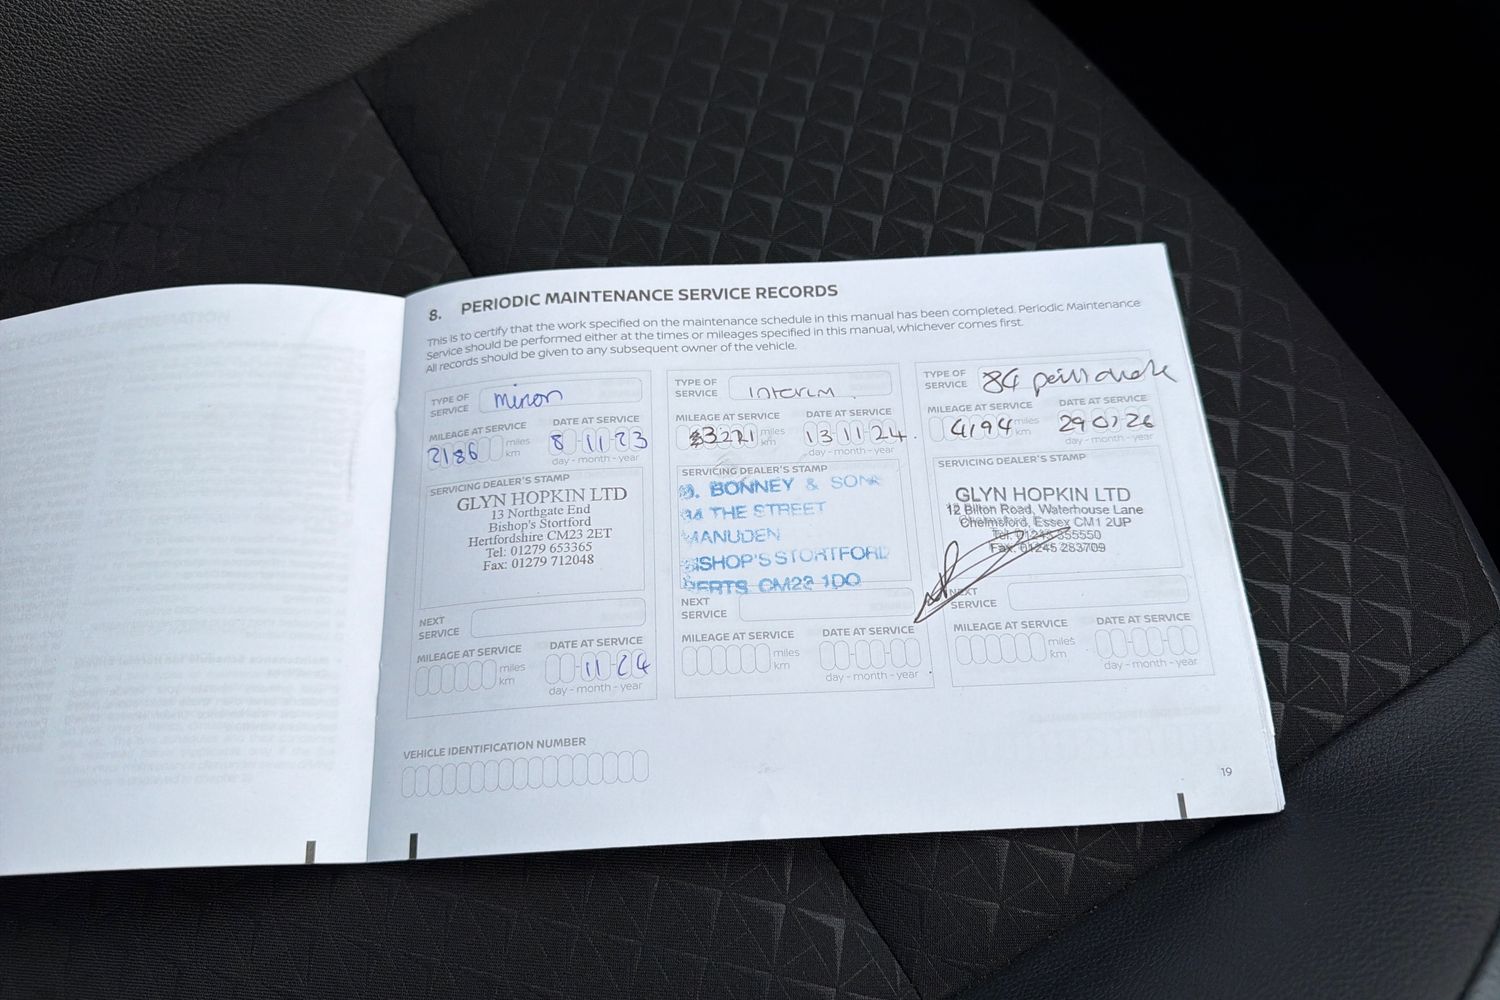 8. PERIODIC MAINTENANCE SERVICE RECORDS
This is to certify that the work specified on the maintenance schedule in this manual has been completed. Periodic Maintenance
Service should be performed either at the times or mileages specified in this manual, whichever comes first.
All records should be given to any subsequent owner of the vehicle.
TYPE OF SERVICE minor
MILEAGE AT SERVICE DATE AT SERVICE
2186 miles km 8 11 23
day - month - year
SERVICING DEALER'S STAMP
GLYN HOPKIN LTD
13 Northgate End
Bishop's Stortford
Hertfordshire CM23 2ET
Tel: 01279 653365
Fax: 01279 712048
NEXT SERVICE
MILEAGE AT SERVICE DATE AT SERVICE
miles km 11 24
day - month - year
TYPE OF SERVICE Interim
MILEAGE AT SERVICE DATE AT SERVICE
miles km 13 11 24
day - month - year
SERVICING DEALER'S STAMP
BONNEY & SON
THE STREET
MANUDEN
BISHOP'S STORTFORD
HERTS CM23 1DO
NEXT SERVICE
MILEAGE AT SERVICE DATE AT SERVICE
miles km
day - month - year
TYPE OF SERVICE 84 point check
MILEAGE AT SERVICE DATE AT SERVICE
4194 miles km 29 01 26
day - month - year
SERVICING DEALER'S STAMP
GLYN HOPKIN LTD
12 Bilton Road, Waterhouse Lane
Chelmsford, Essex CM1 2UP
Tel: 01245 355550
Fax: 01245 283709
NEXT SERVICE
MILEAGE AT SERVICE DATE AT SERVICE
miles km
day - month - year
VEHICLE IDENTIFICATION NUMBER
19